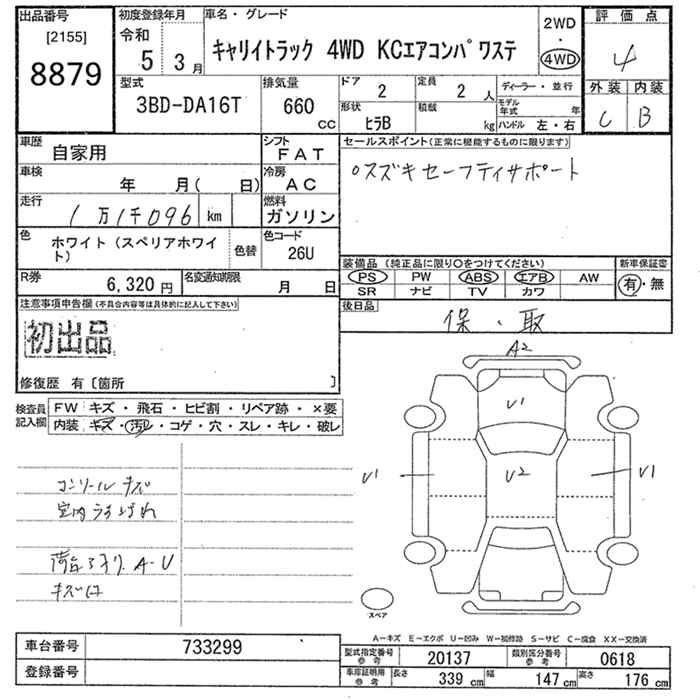 出品番号
[2155]
8879
初度登録年月
令和
5 3月
車名・グレード
キャリイトラック 4WD KCエアコンパワステ
2WD
・
4WD
評価点
4
外装 内装
C B
型式
3BD-DA16T
排気量
660
CC
ドア
2
定員
2 人
形状
ヒラB
積載
kg
ディーラー・並行
モデル年式 年
ハンドル 左・右
車歴
自家用
シフト
FAT
車検
年 月( 日)
冷房
AC
走行
1万1千096 km
燃料
ガソリン
色
ホワイト(スペリアホワイト)
色替
色コード
26U
R券
6,320 円
名変通知期限
月 日
セールスポイント(正常に機能するものに限ります)
○スズキセーフティサポート
装備品(純正品に限り○をつけてください)
PS PW ABS エアB AW
SR ナビ TV カワ
新車保証書
有・無
後日品
保・取
注意事項申告欄(不具合内容等は具体的に記入して下さい)
初出品
修復歴 有〔箇所 〕
検査員記入欄
FW キズ・飛石・ヒビ割・リペア跡・×要
内装 キズ・汚れ・コゲ・穴・スレ・キレ・破レ
コンソールキズ
室内うすよごれ
A-U
A2
U1
U1
U2
U1
スペア
A-キズ E-エクボ U-凹み W-補修跡 S-サビ C-腐食 XX-交換済
車台番号
733299
登録番号
型式指定番号参考
20137
類別区分番号参考
0618
車庫証明用参考
長さ 339 cm
幅 147 cm
高さ 176 cm